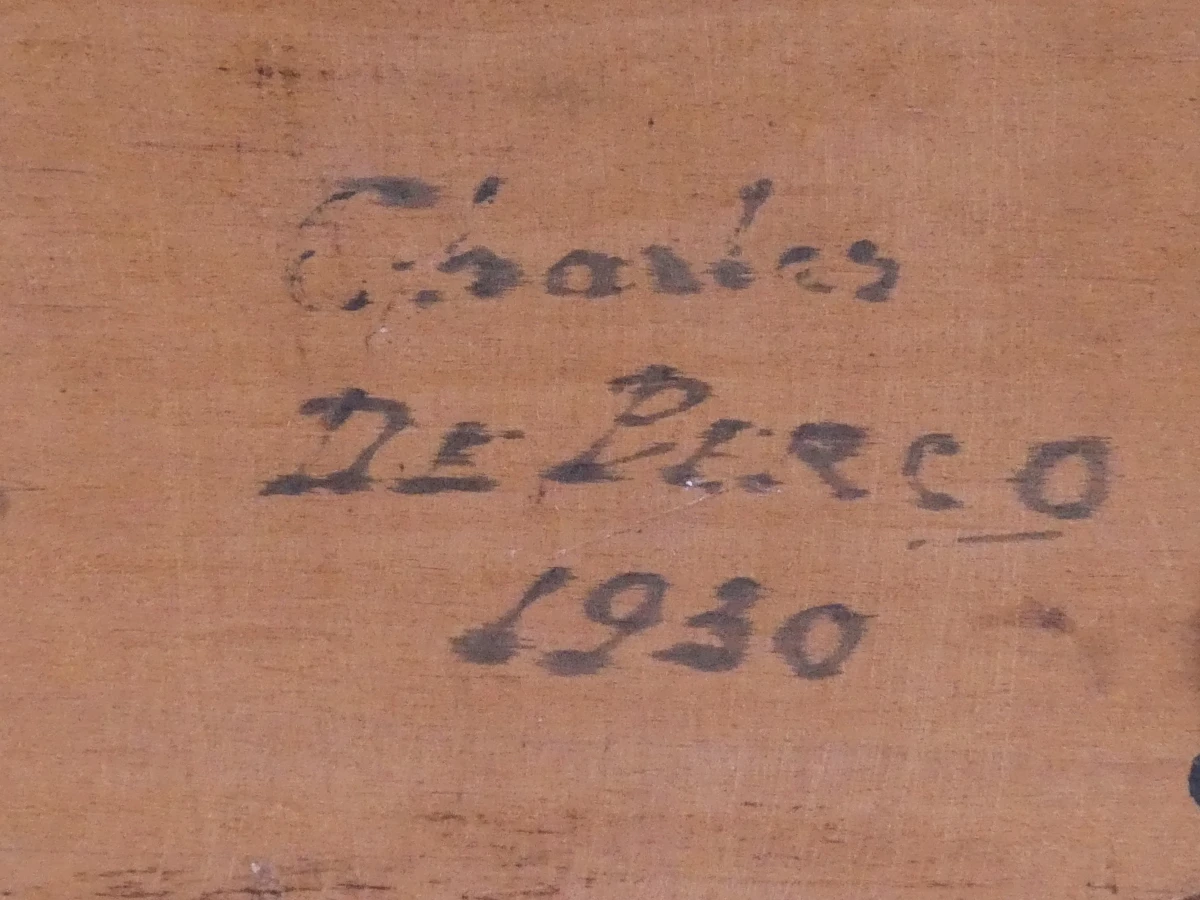 Charles
DE BERGO
1930